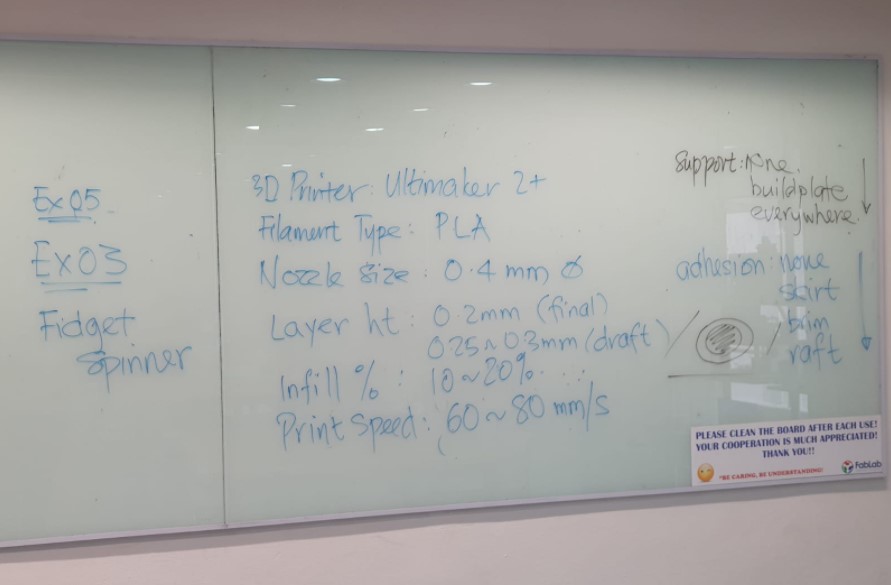 Ex05
Ex03
Fidget
Spinner
3D Printer: Ultimaker 2+
Filament Type: PLA
Nozzle Size: 0.4 mm Ø
Layer ht: 0.2mm (final)
0.25~0.3mm (draft)
Infill %: 10~20%
Print Speed: 60~80 mm/s
Support: None
buildplate
everywhere
adhesion: none
skirt
brim
raft
PLEASE CLEAN THE BOARD AFTER EACH USE!
YOUR COOPERATION IS MUCH APPRECIATED!
THANK YOU!!
"BE CARING, BE UNDERSTANDING!
FabLab